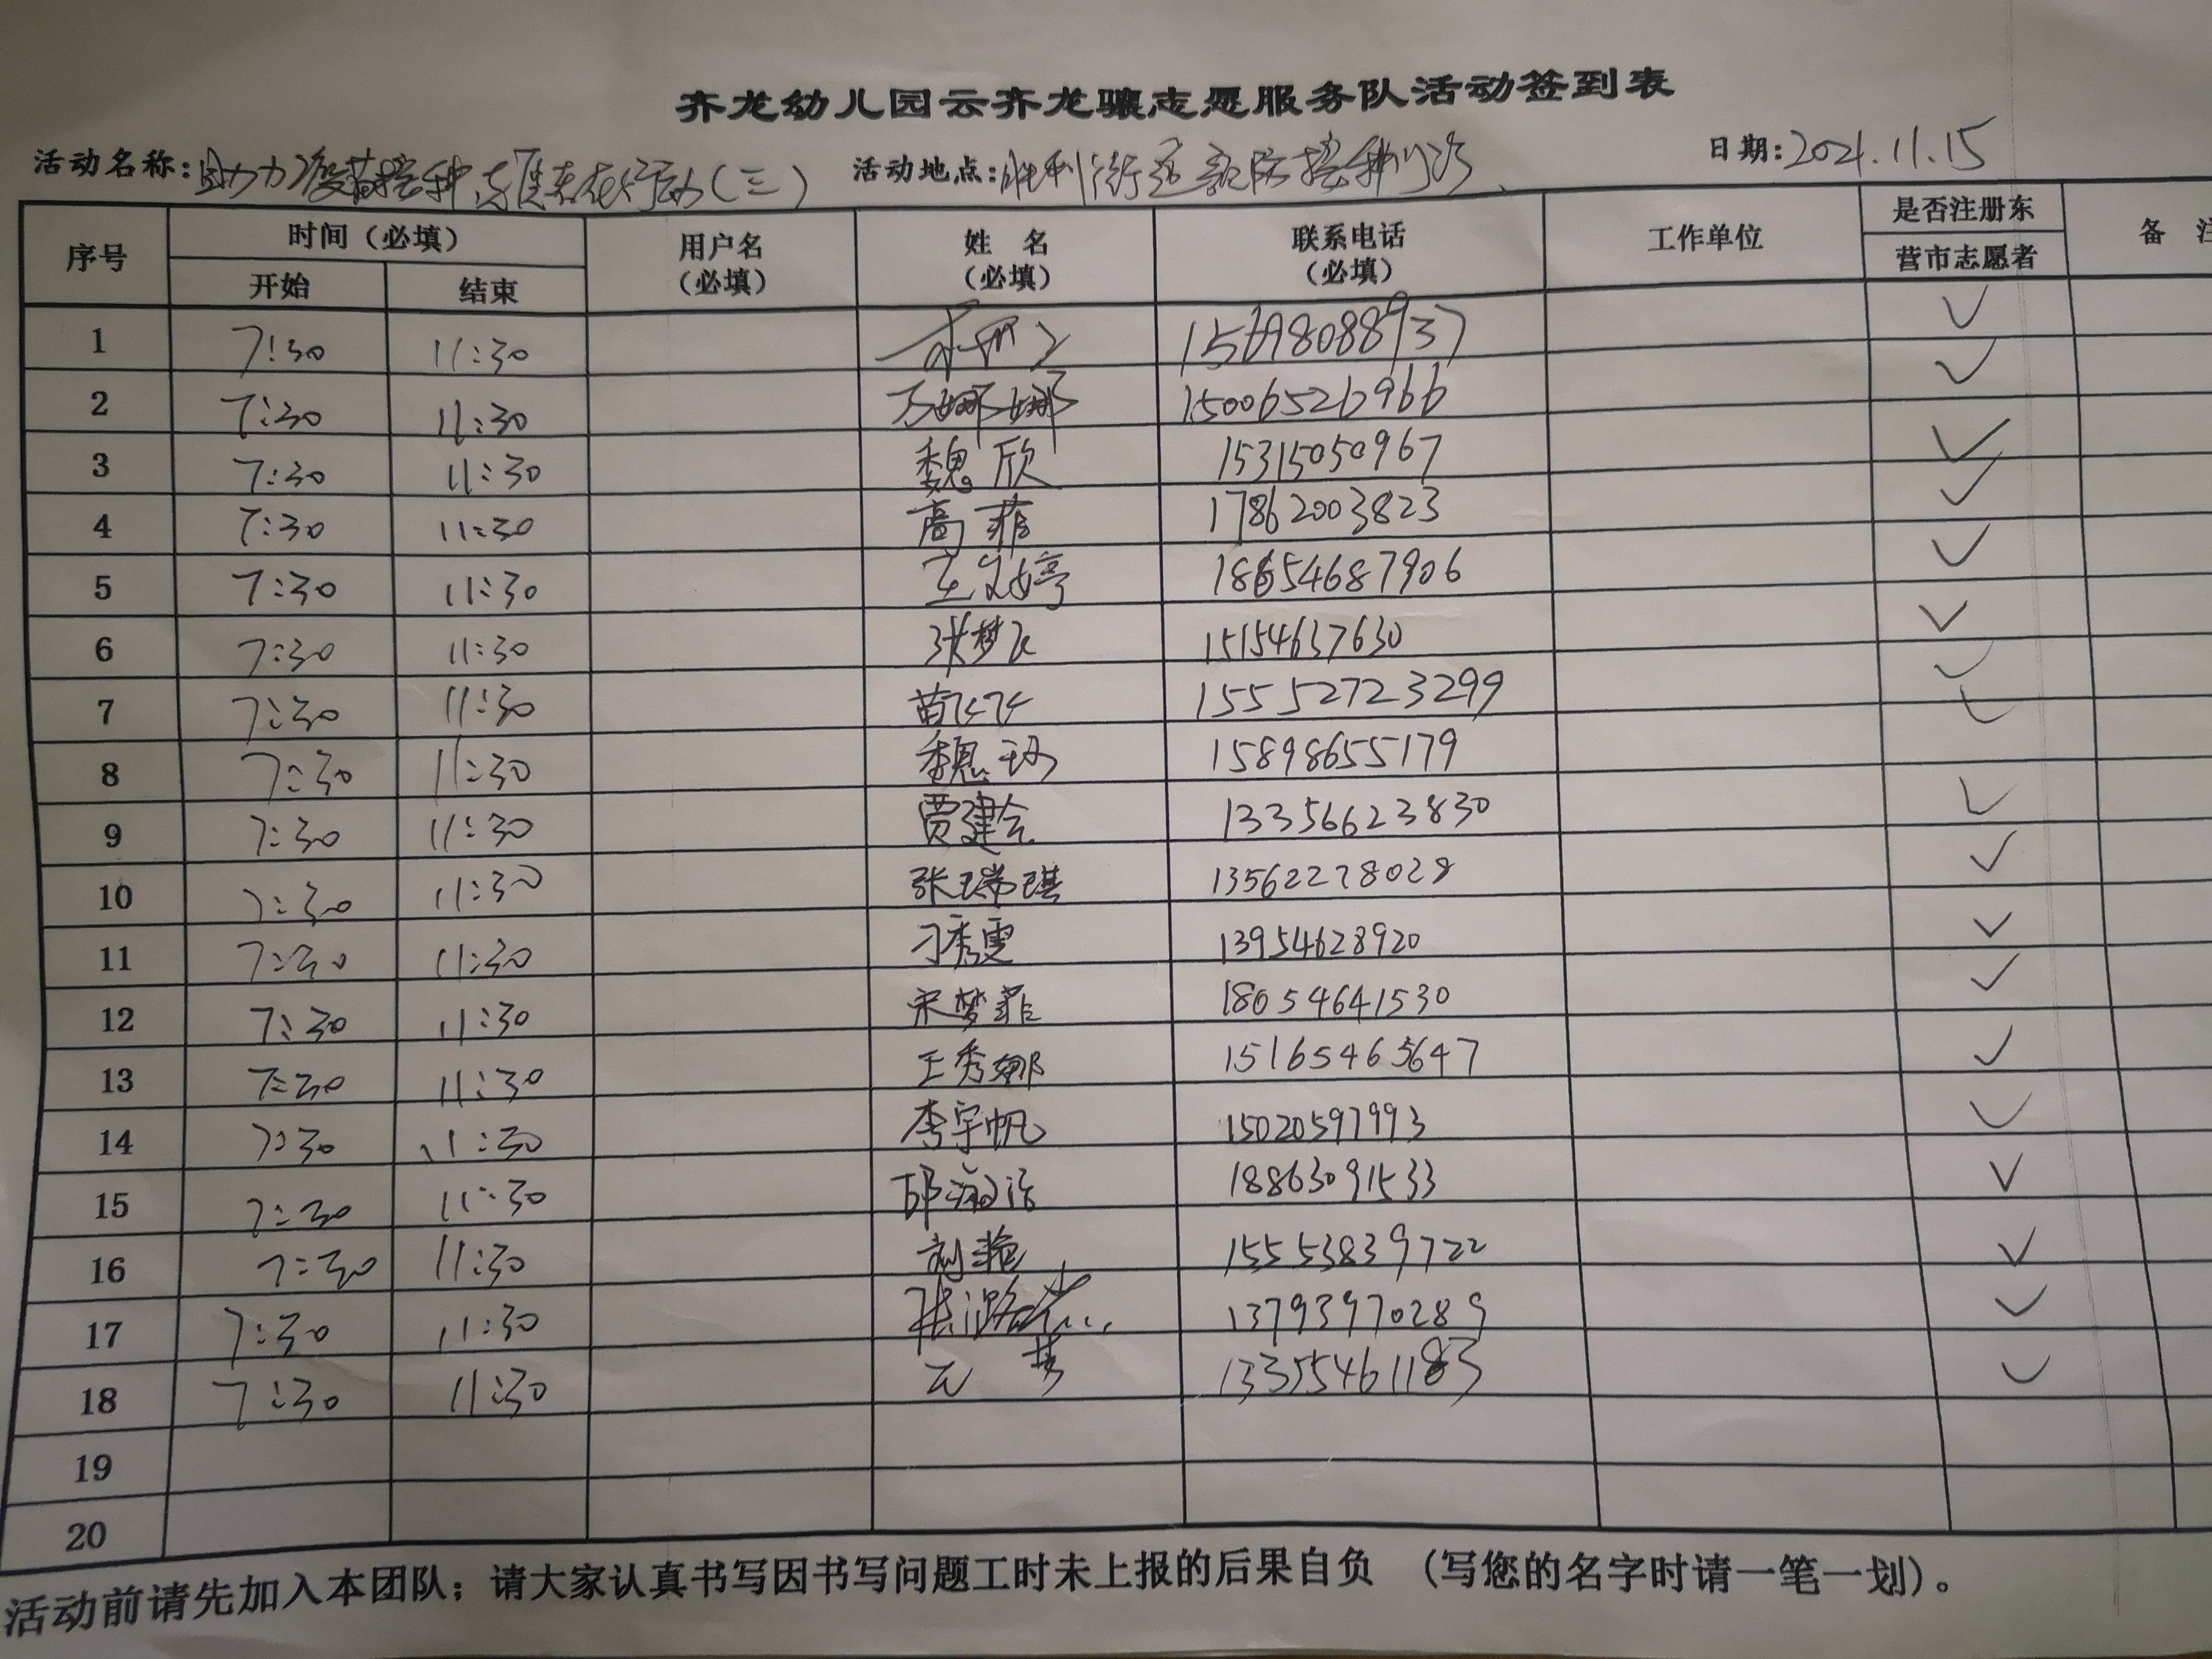 齐龙幼儿园云齐龙骧志愿服务队活动签到表
活动名称:助力疫苗接种,志愿东在行动(三) 活动地点:胜利街道预防接种门诊 日期:2021.11.15
序号 时间（必填） 用户名（必填） 姓 名（必填） 联系电话（必填） 工作单位 是否注册东营市志愿者 备 注
开始 结束
1 7:30 11:30 15698088937 ✓
2 7:30 11:30 万娜娜 15006526966 ✓
3 7:30 11:30 魏欣 15315050967 ✓
4 7:30 11:30 高菲 17862003823 ✓
5 7:30 11:30 王文婷 18654687906 ✓
6 7:30 11:30 张梦飞 15154637630 ✓
7 7:30 11:30 苗飞飞 15552723299 ✓
8 7:30 11:30 魏巧 15898655179 ✓
9 7:30 11:30 贾建会 13356623830 ✓
10 7:30 11:30 张瑞琪 13562278028 ✓
11 7:30 11:30 刁秀雯 13954628920 ✓
12 7:30 11:30 宋梦菲 18054641530 ✓
13 7:30 11:30 王秀娜 15165465647 ✓
14 7:30 11:30 李宇帆 15020597993 ✓
15 7:30 11:30 邱 18863091533 ✓
16 7:30 11:30 刘艳 15553839722 ✓
17 7:30 11:30 张潞 13793970289 ✓
18 7:30 11:30 云梦 13355461183 ✓
19
20
活动前请先加入本团队；请大家认真书写因书写问题工时未上报的后果自负 （写您的名字时请一笔一划）。